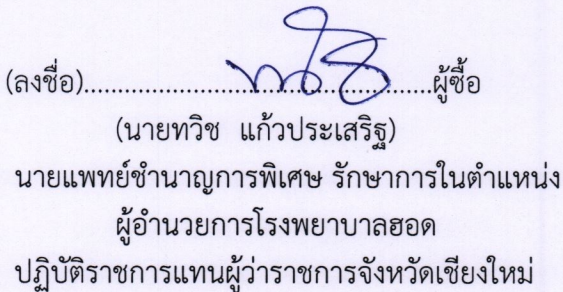 (ลงชื่อ)..............................................ผู้ซื้อ
(นายทวิช แก้วประเสริฐ)
นายแพทย์ชำนาญการพิเศษ รักษาการในตำแหน่ง
ผู้อำนวยการโรงพยาบาลฮอด
ปฏิบัติราชการแทนผู้ว่าราชการจังหวัดเชียงใหม่